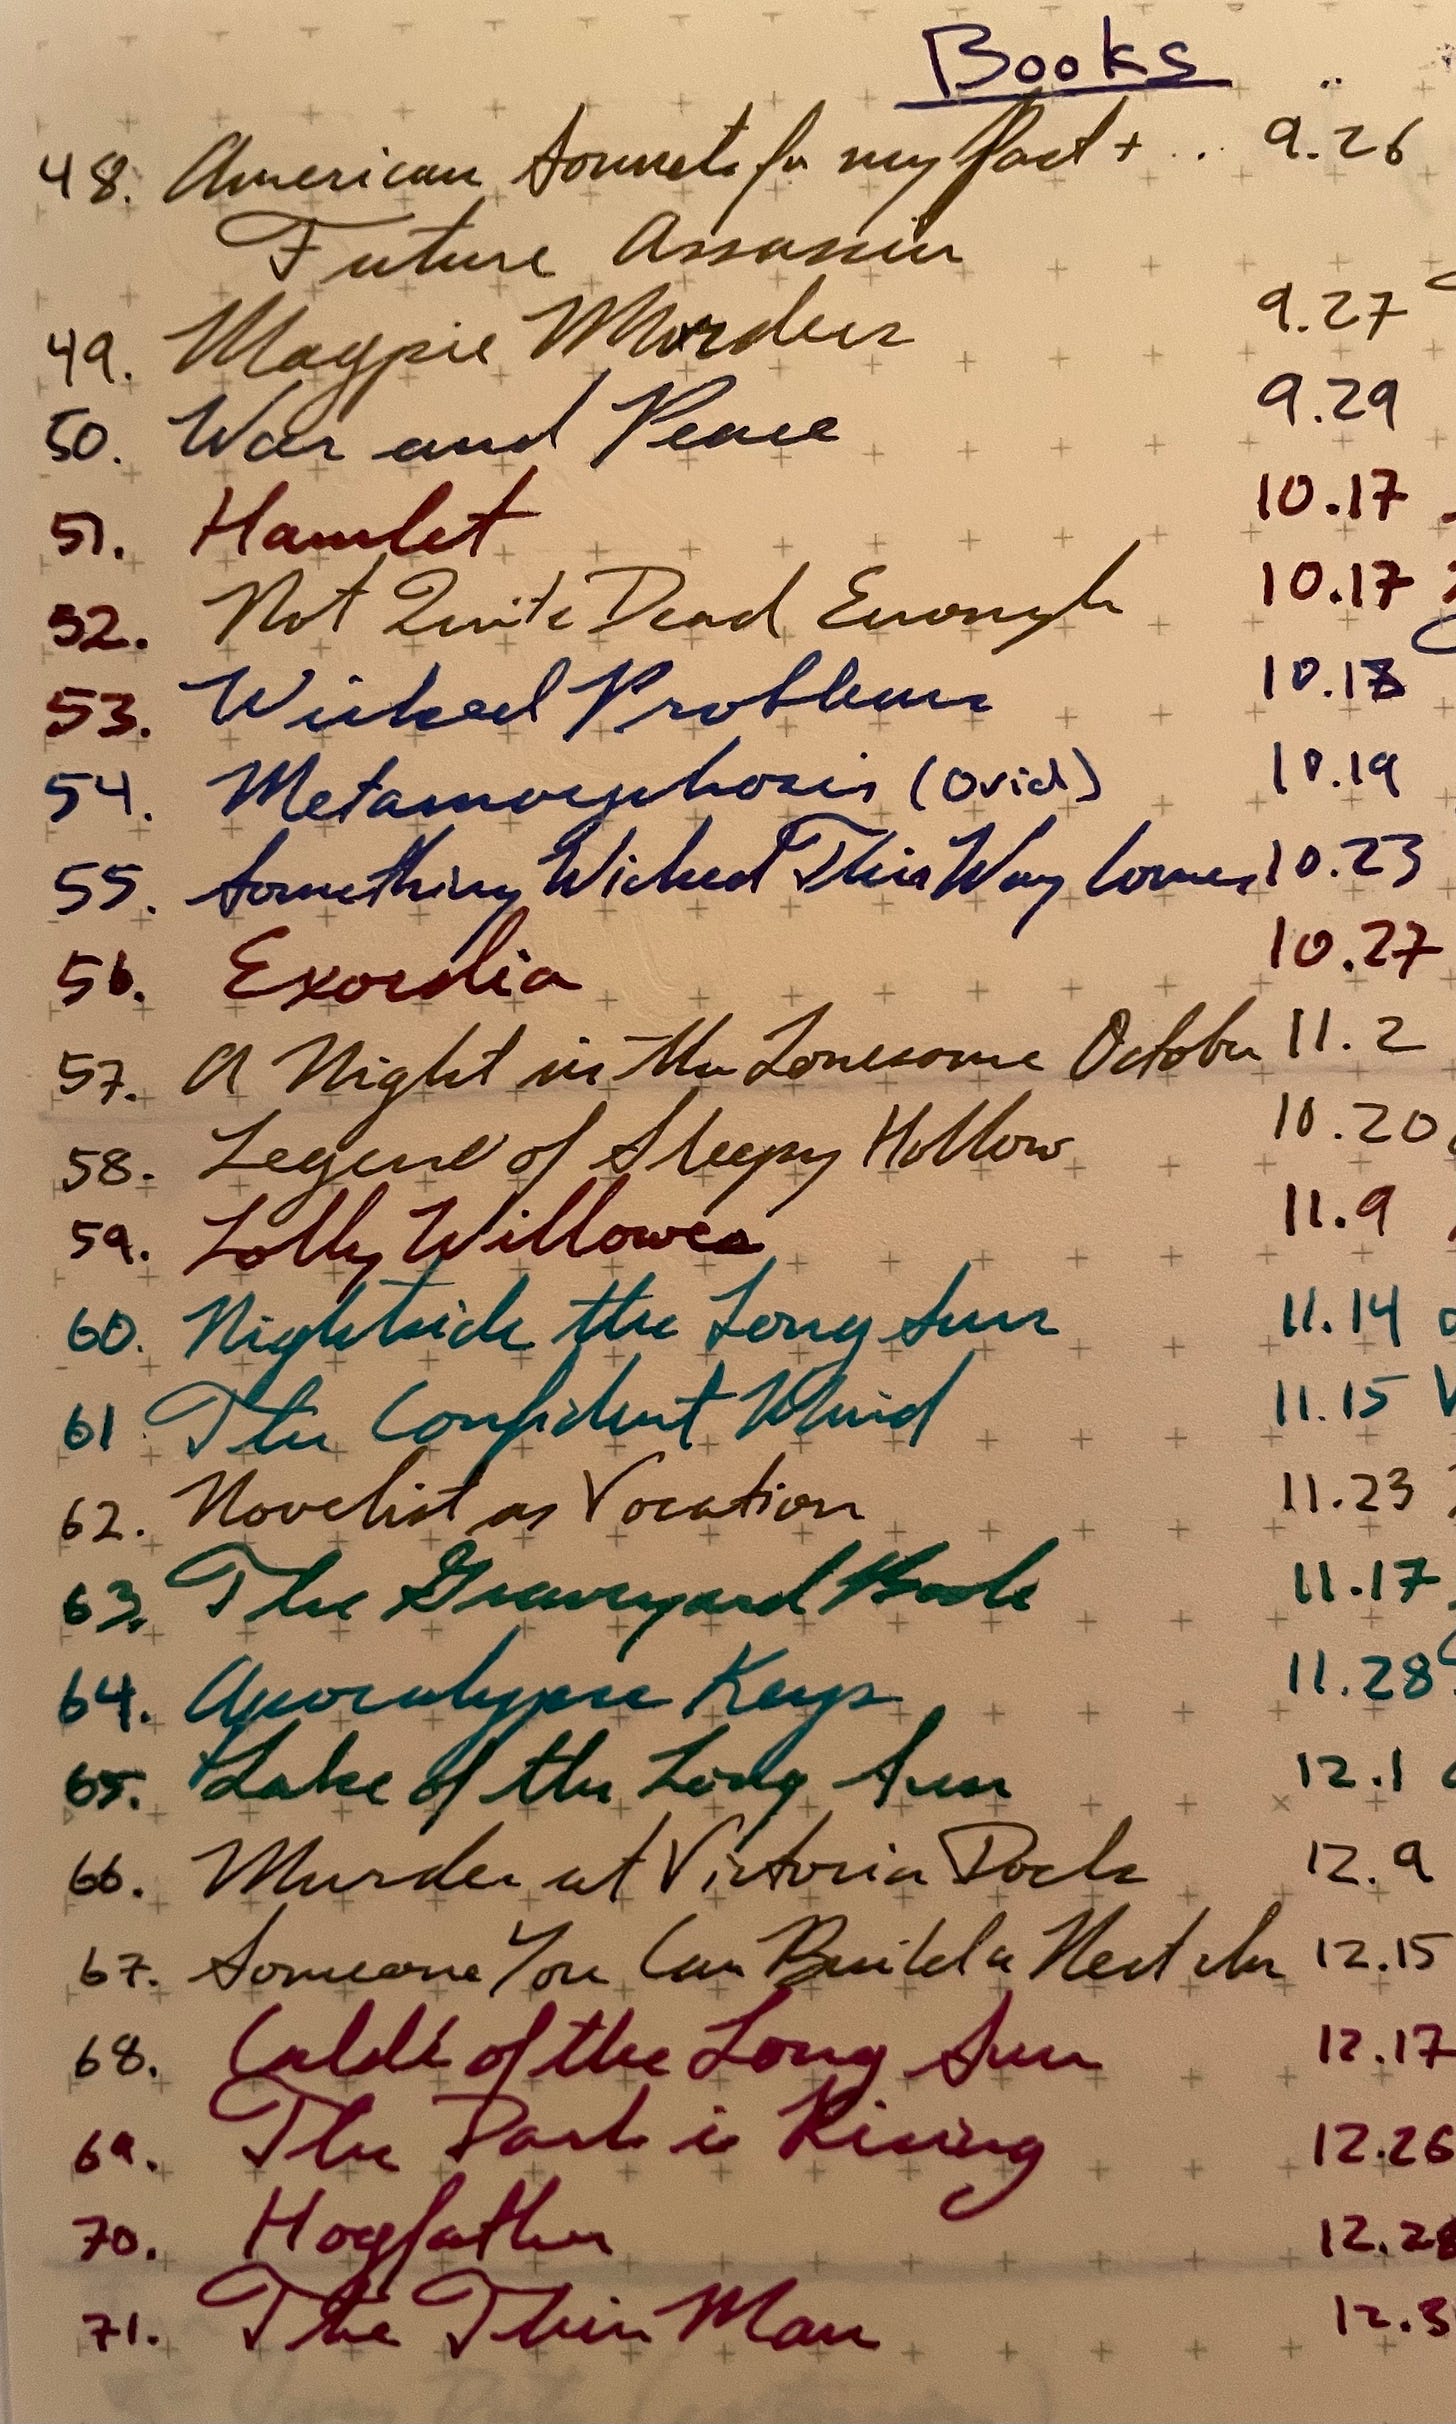 Books
48. American Sonnets for my Past + ... 9.26
Future Assassin
49. Magpie Murders 9.27
50. War and Peace 9.29
51. Hamlet 10.17
52. Not Quite Dead Enough 10.17
53. Wicked Problems 10.18
54. Metamorphosis (Ovid) 10.19
55. Something Wicked This Way Comes 10.23
56. Exordia 10.27
57. A Night in the Lonesome October 11.2
58. Legend of Sleepy Hollow 10.20
59. Lolly Willowes 11.9
60. Nightside the Long Sun 11.14
61. The Confident Mind 11.15
62. Novelist as Vocation 11.23
63. The Graveyard Book 11.17
64. Apocalypse Keys 11.28
65. Lake of the Long Sun 12.1
66. Murder at Victoria Dock 12.9
67. Someone You Can Build a Nest In 12.15
68. Caldé of the Long Sun 12.17
69. The Dark is Rising 12.26
70. Hogfather 12.28
71. The Thin Man 12.3